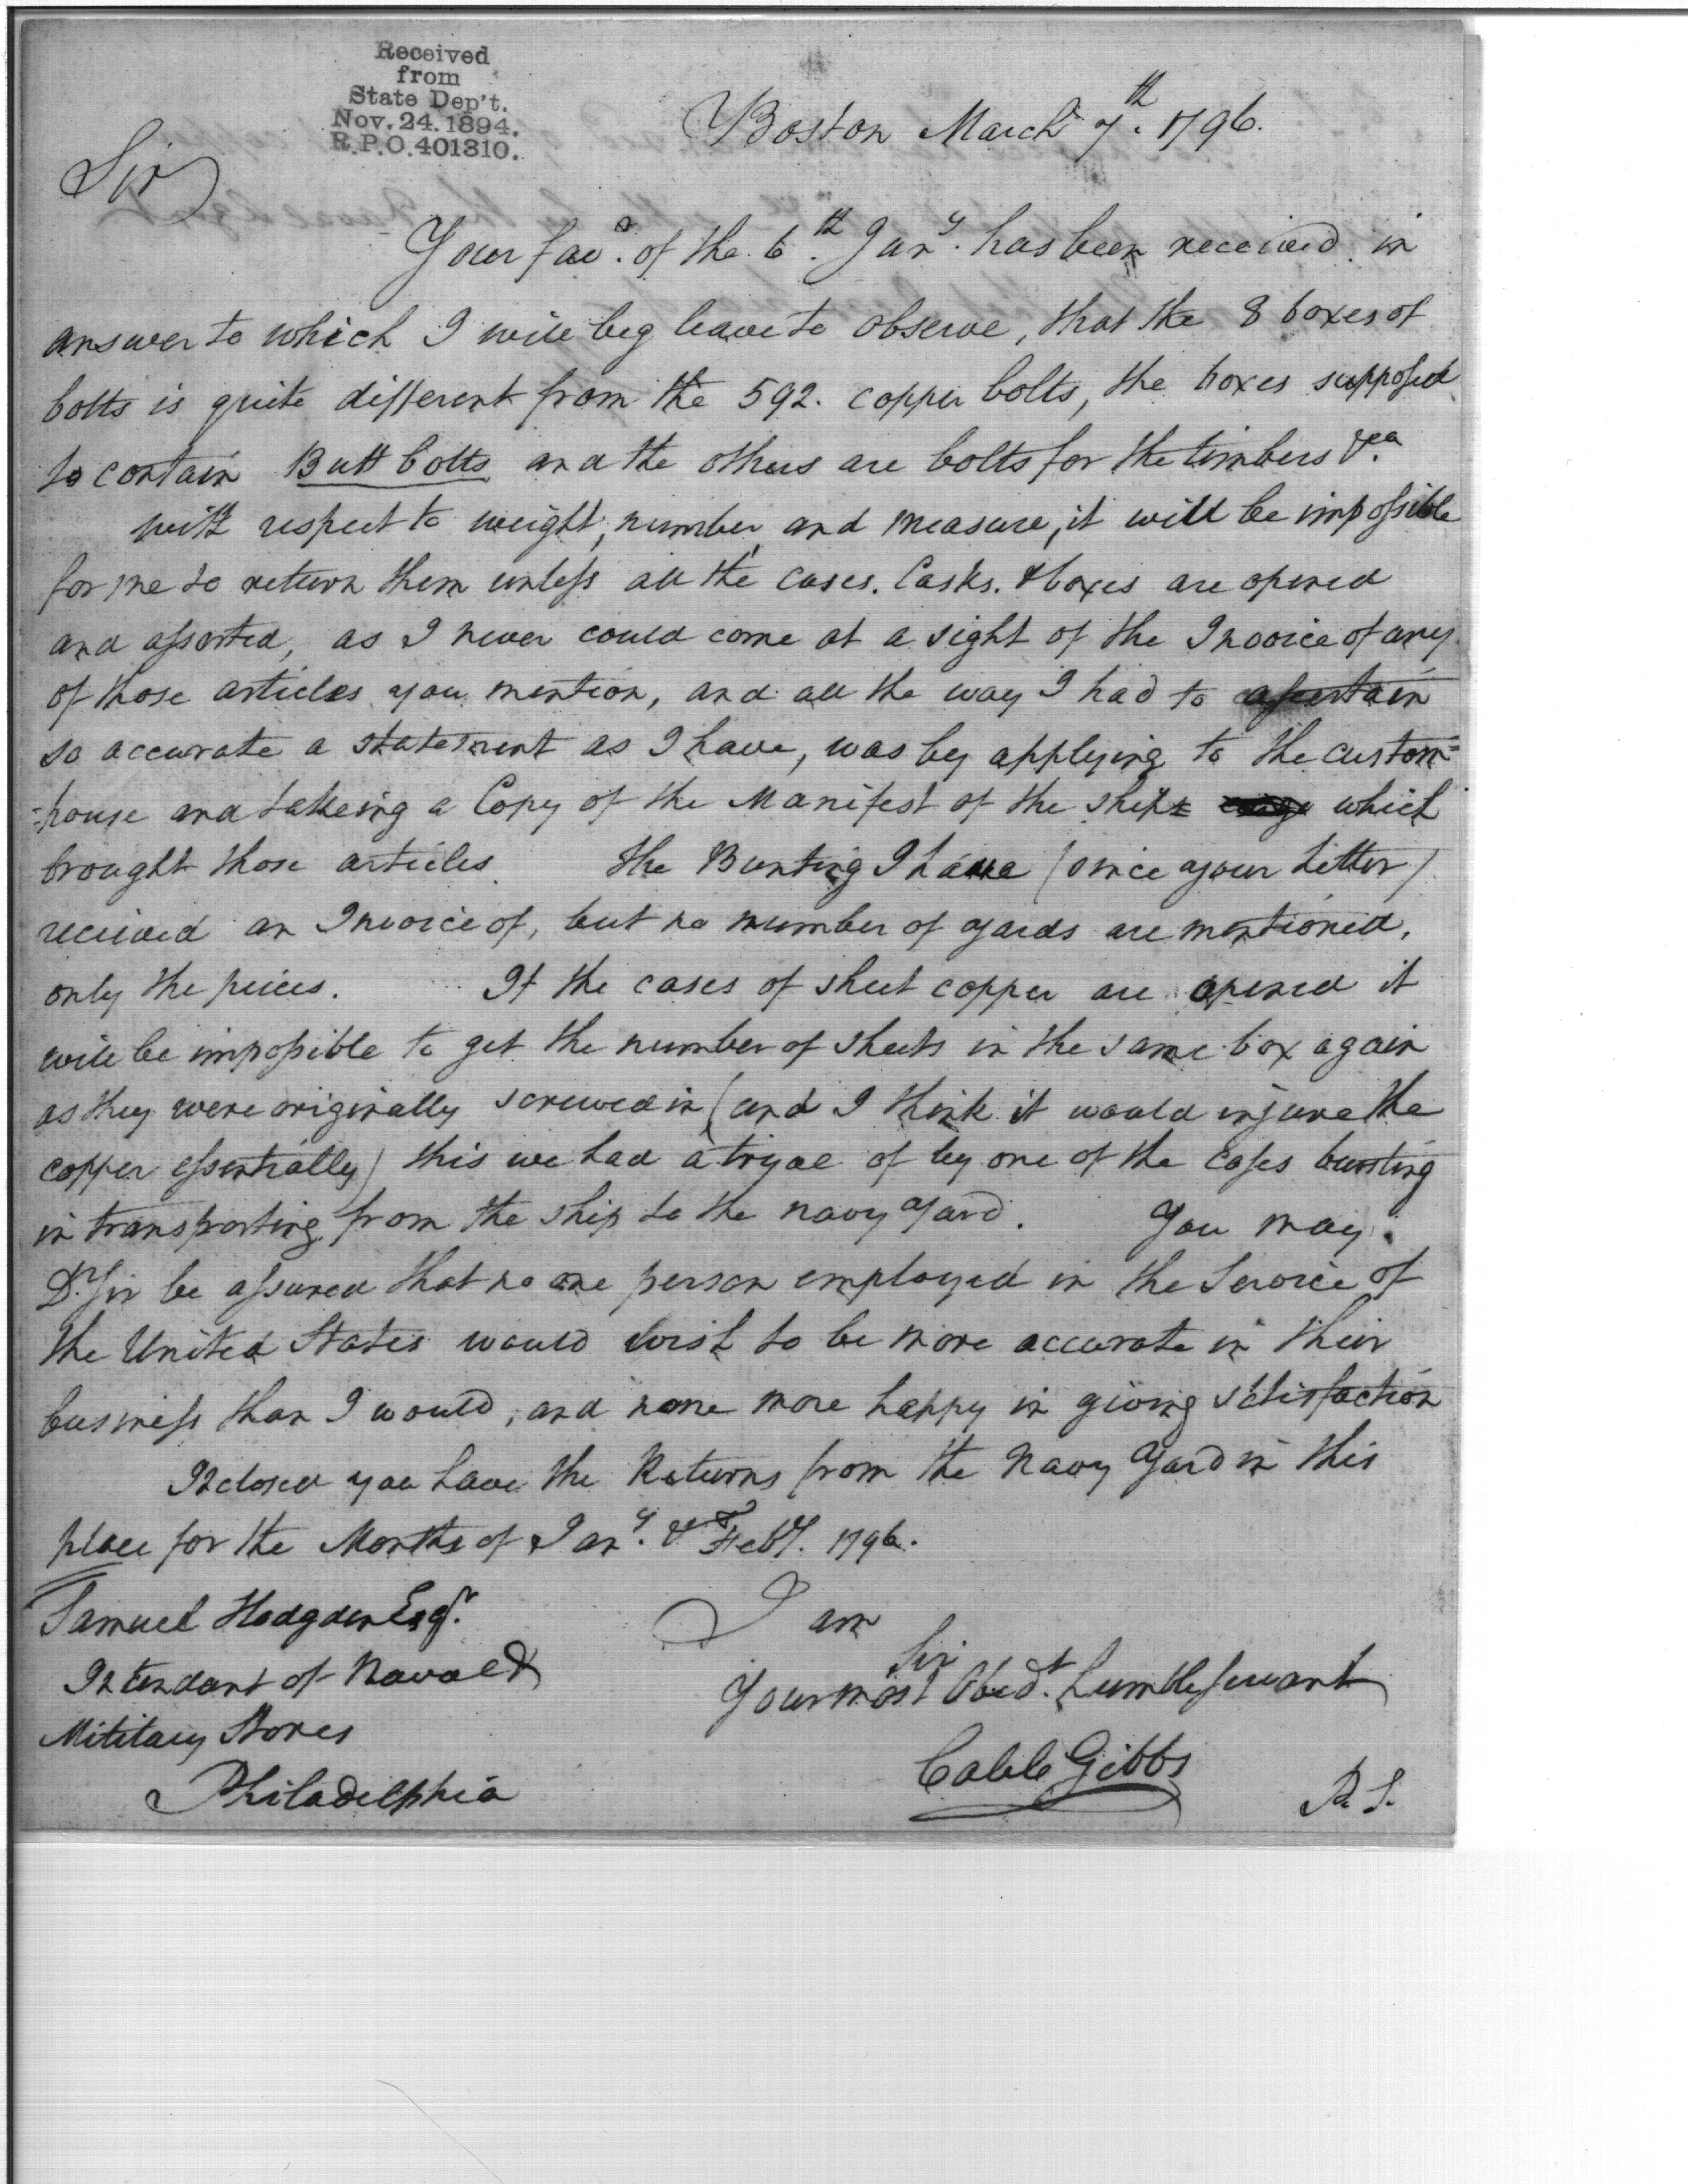 Received
from
State Dep't.
Nov. 24. 1894.
R.P.O. 401310.
Boston March 7th. 1796.
Sir
Your favr. of the 6th. Jany. has been received in
answer to which I will beg leave to observe, that the 8 boxes of
bolts is quite different from the 592. copper bolts, the boxes supposed
to contain Butt bolts and the others are bolts for the timbers &ca.
with respect to weight, number and measure, it will be impossible
for me to return them unless all the cases. Casks. & boxes are opened
and assorted, as I never could come at a sight of the Invoice of any
of those articles you mention, and all the way I had to ascertain
so accurate a statement as I have, was by applying to the custom=
=house and takeing a Copy of the Manifest of the ships which
brought those articles. the Bunting I have (since your Letter)
received an Invoice of, but no number of yards are mentioned,
only the peices. If the cases of sheet copper are opened it
will be impossible to get the number of sheets in the same box again
as they were originally screwed in (and I think it would injure the
copper essentially) this we had a tryal of by one of the Cases bursting
in transporting from the ship to the navy yard. You may
Dr. Sir be assured that no one person employed in the Service of
the United States would wish to be more accurate in their
business than I would, and none more happy in giving satisfaction
Inclosed you have the Returns from the Navy Yard in this
place for the Months of Jany. & Feby. 1796.
Samuel Hodgdon Esqr.
Intendant of Naval &
Military Stores
Philadelphia
I am
Sir
Your most Obedt. humble servant
Caleb Gibbs
P. S.